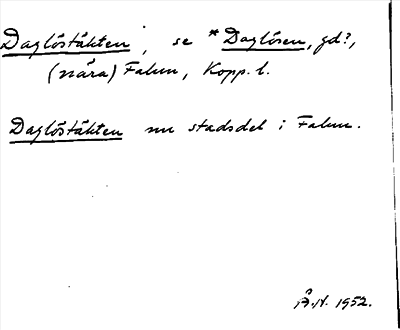 Daglöstäkten, se *Daglösen, gd?,
(nära) Falun, Kopp. l.
Daglöstäkten nu stadsdel i Falun.
Å.H. 1952.